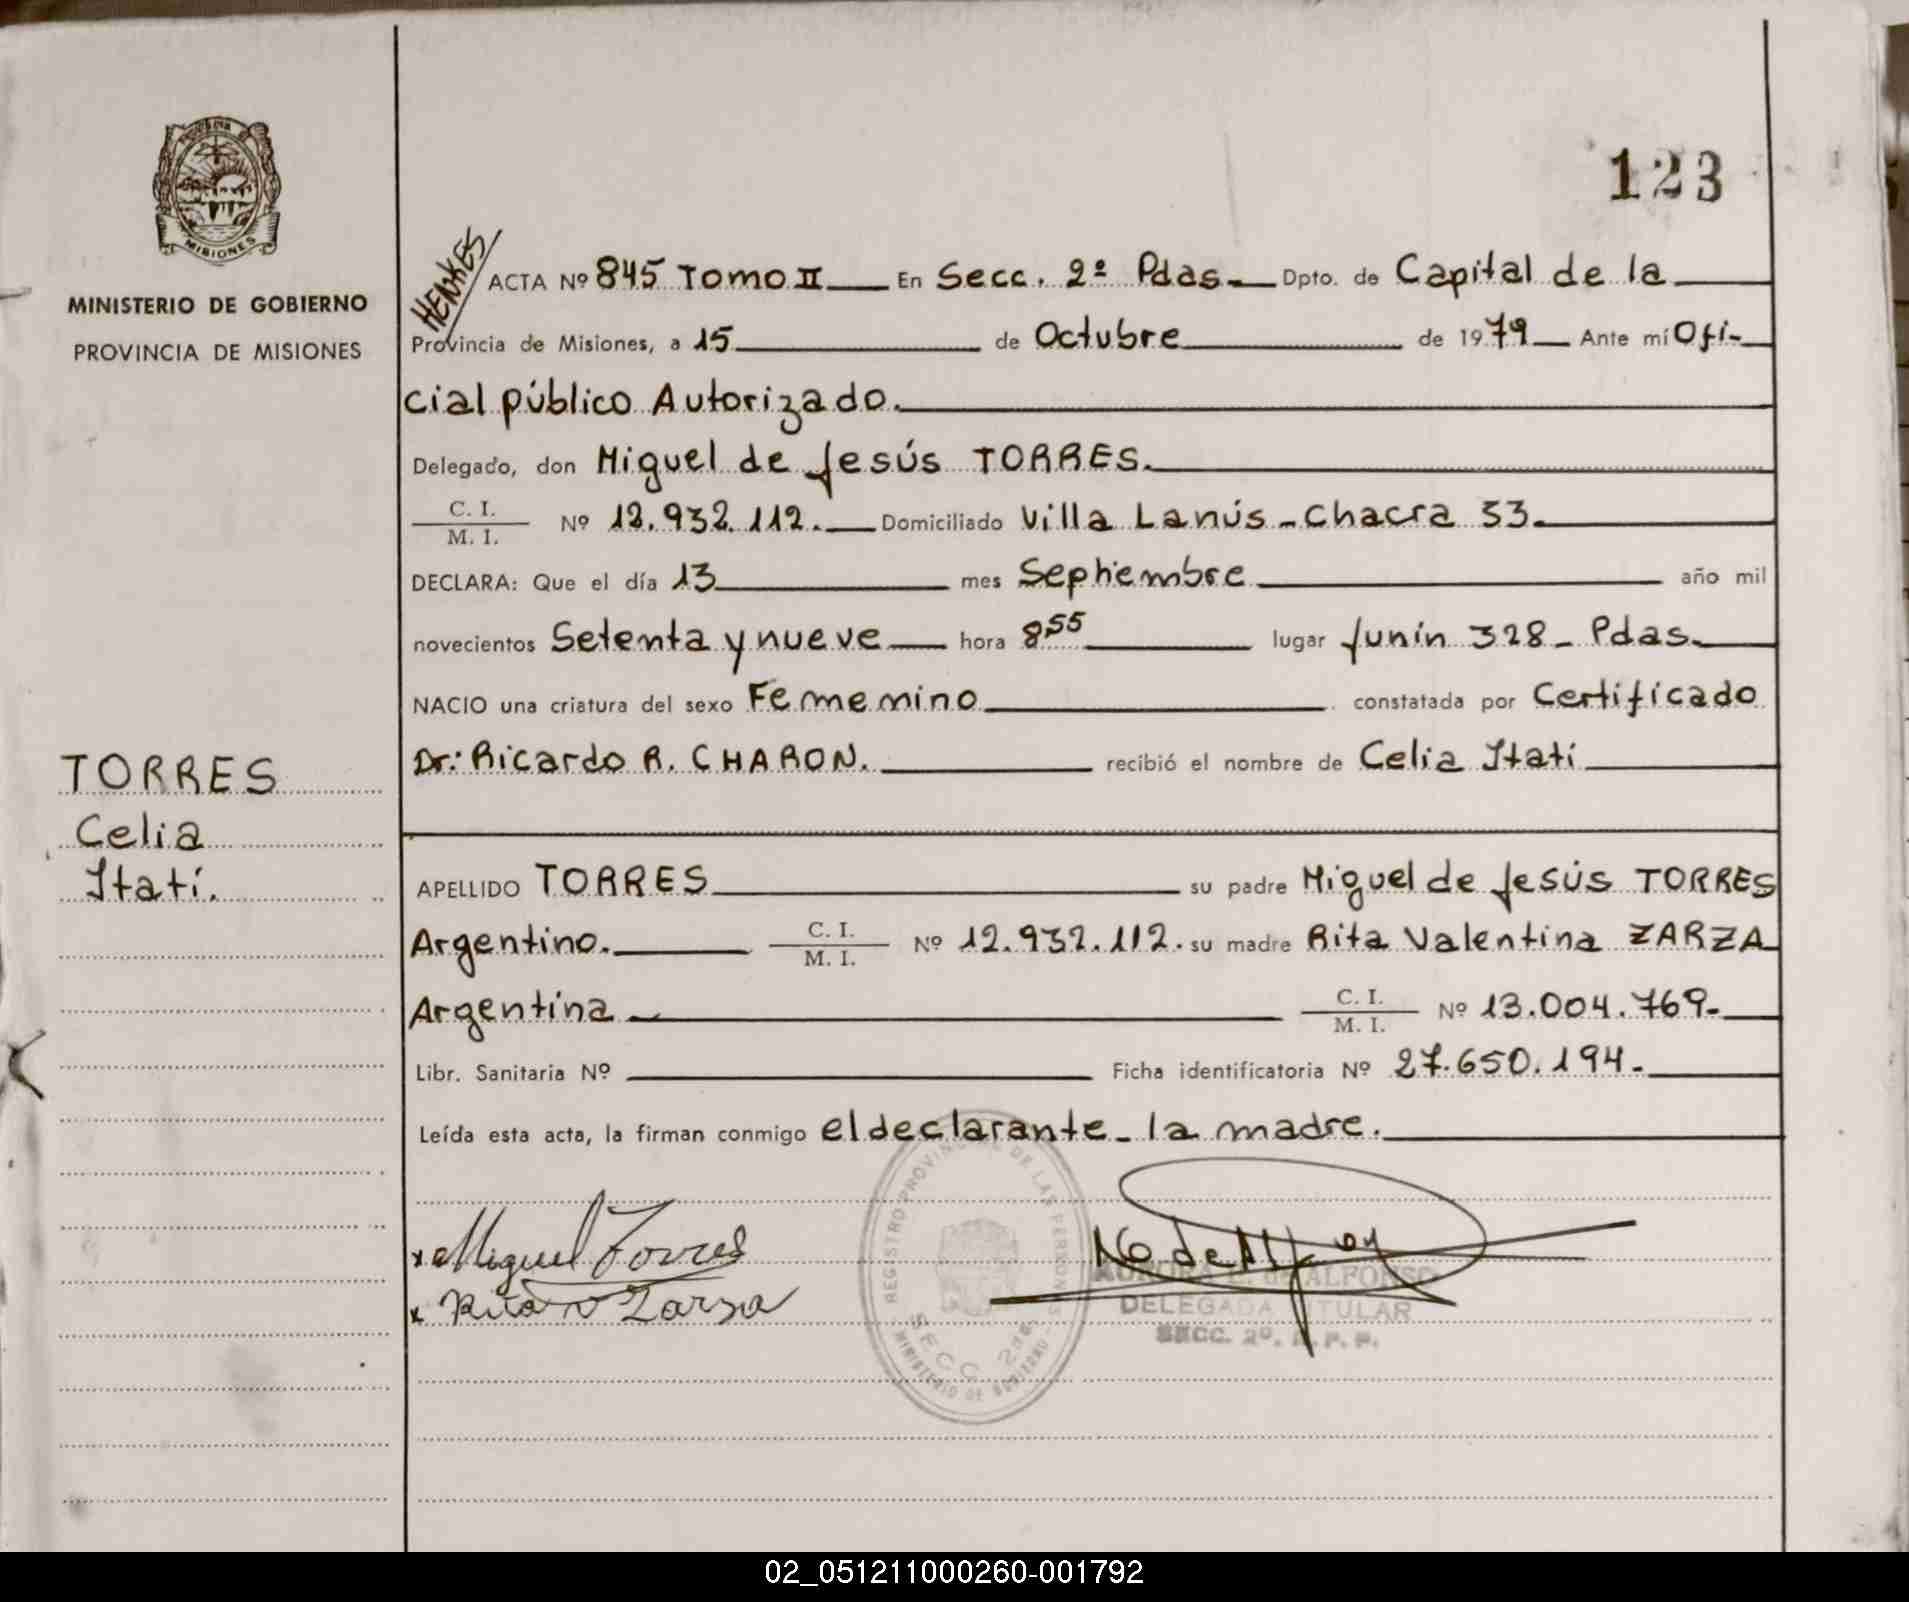 123
MISIONES
MINISTERIO DE GOBIERNO
PROVINCIA DE MISIONES
TORRES
Celia
Itatí.
HENKES
ACTA Nº 845 Tomo II En Secc. 2º Pdas. Dpto. de Capital de la
Provincia de Misiones, a 15 de Octubre de 1979 Ante mí Ofi-
cial público Autorizado.
Delegado, don Miguel de Jesús TORRES.
C. I.
M. I. Nº 12.932.112. Domiciliado Villa Lanús - Chacra 33.
DECLARA: Que el día 13 mes Septiembre año mil
novecientos Setenta y nueve hora 8 55 lugar Junín 328 - Pdas.
NACIO una criatura del sexo Femenino constatada por Certificado
Dr: Ricardo R. CHARON. recibió el nombre de Celia Itatí
APELLIDO TORRES su padre Miguel de Jesús TORRES
Argentino. C. I.
M. I. Nº 12.932.112. su madre Rita Valentina ZARZA
Argentina C. I.
M. I. Nº 13.004.769-
Libr. Sanitaria Nº Ficha identificatoria Nº 27.650.194-
Leída esta acta, la firman conmigo el declarante - la madre.
x Miguel Torres
x Rita V Zarza
REGISTRO PROVINCIAL DE LAS PERSONAS
MINISTERIO DE GOBIERNO
SECC 2da
de ALFONSO
DELEGADA TITULAR
SECC. 2º. R. P. P.
02_051211000260-001792